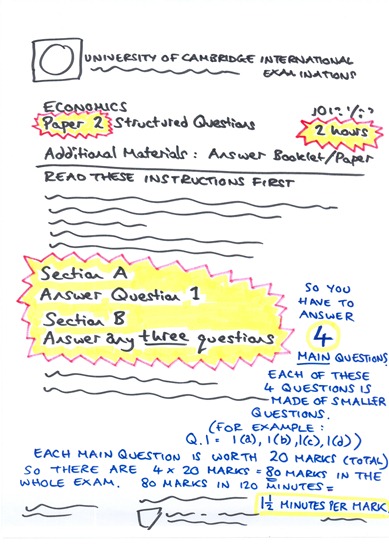 UNIVERSITY OF CAMBRIDGE INTERNATIONAL
EXAMINATIONS
ECONOMICS
Paper 2 Structured Questions
2 hours
Additional Materials : Answer Booklet/Paper
READ THESE INSTRUCTIONS FIRST
Section A
Answer Question 1
Section B
Answer any three questions
SO YOU
HAVE TO
ANSWER
4
MAIN QUESTIONS.
EACH OF THESE
4 QUESTIONS IS
MADE OF SMALLER
QUESTIONS.
(FOR EXAMPLE :
Q.1 = 1(a), 1(b), 1(c), 1(d))
EACH MAIN QUESTION IS WORTH 20 MARKS (TOTAL)
SO THERE ARE 4 x 20 MARKS = 80 MARKS IN THE
WHOLE EXAM. 80 MARKS IN 120 MINUTES =
1½ MINUTES PER MARK